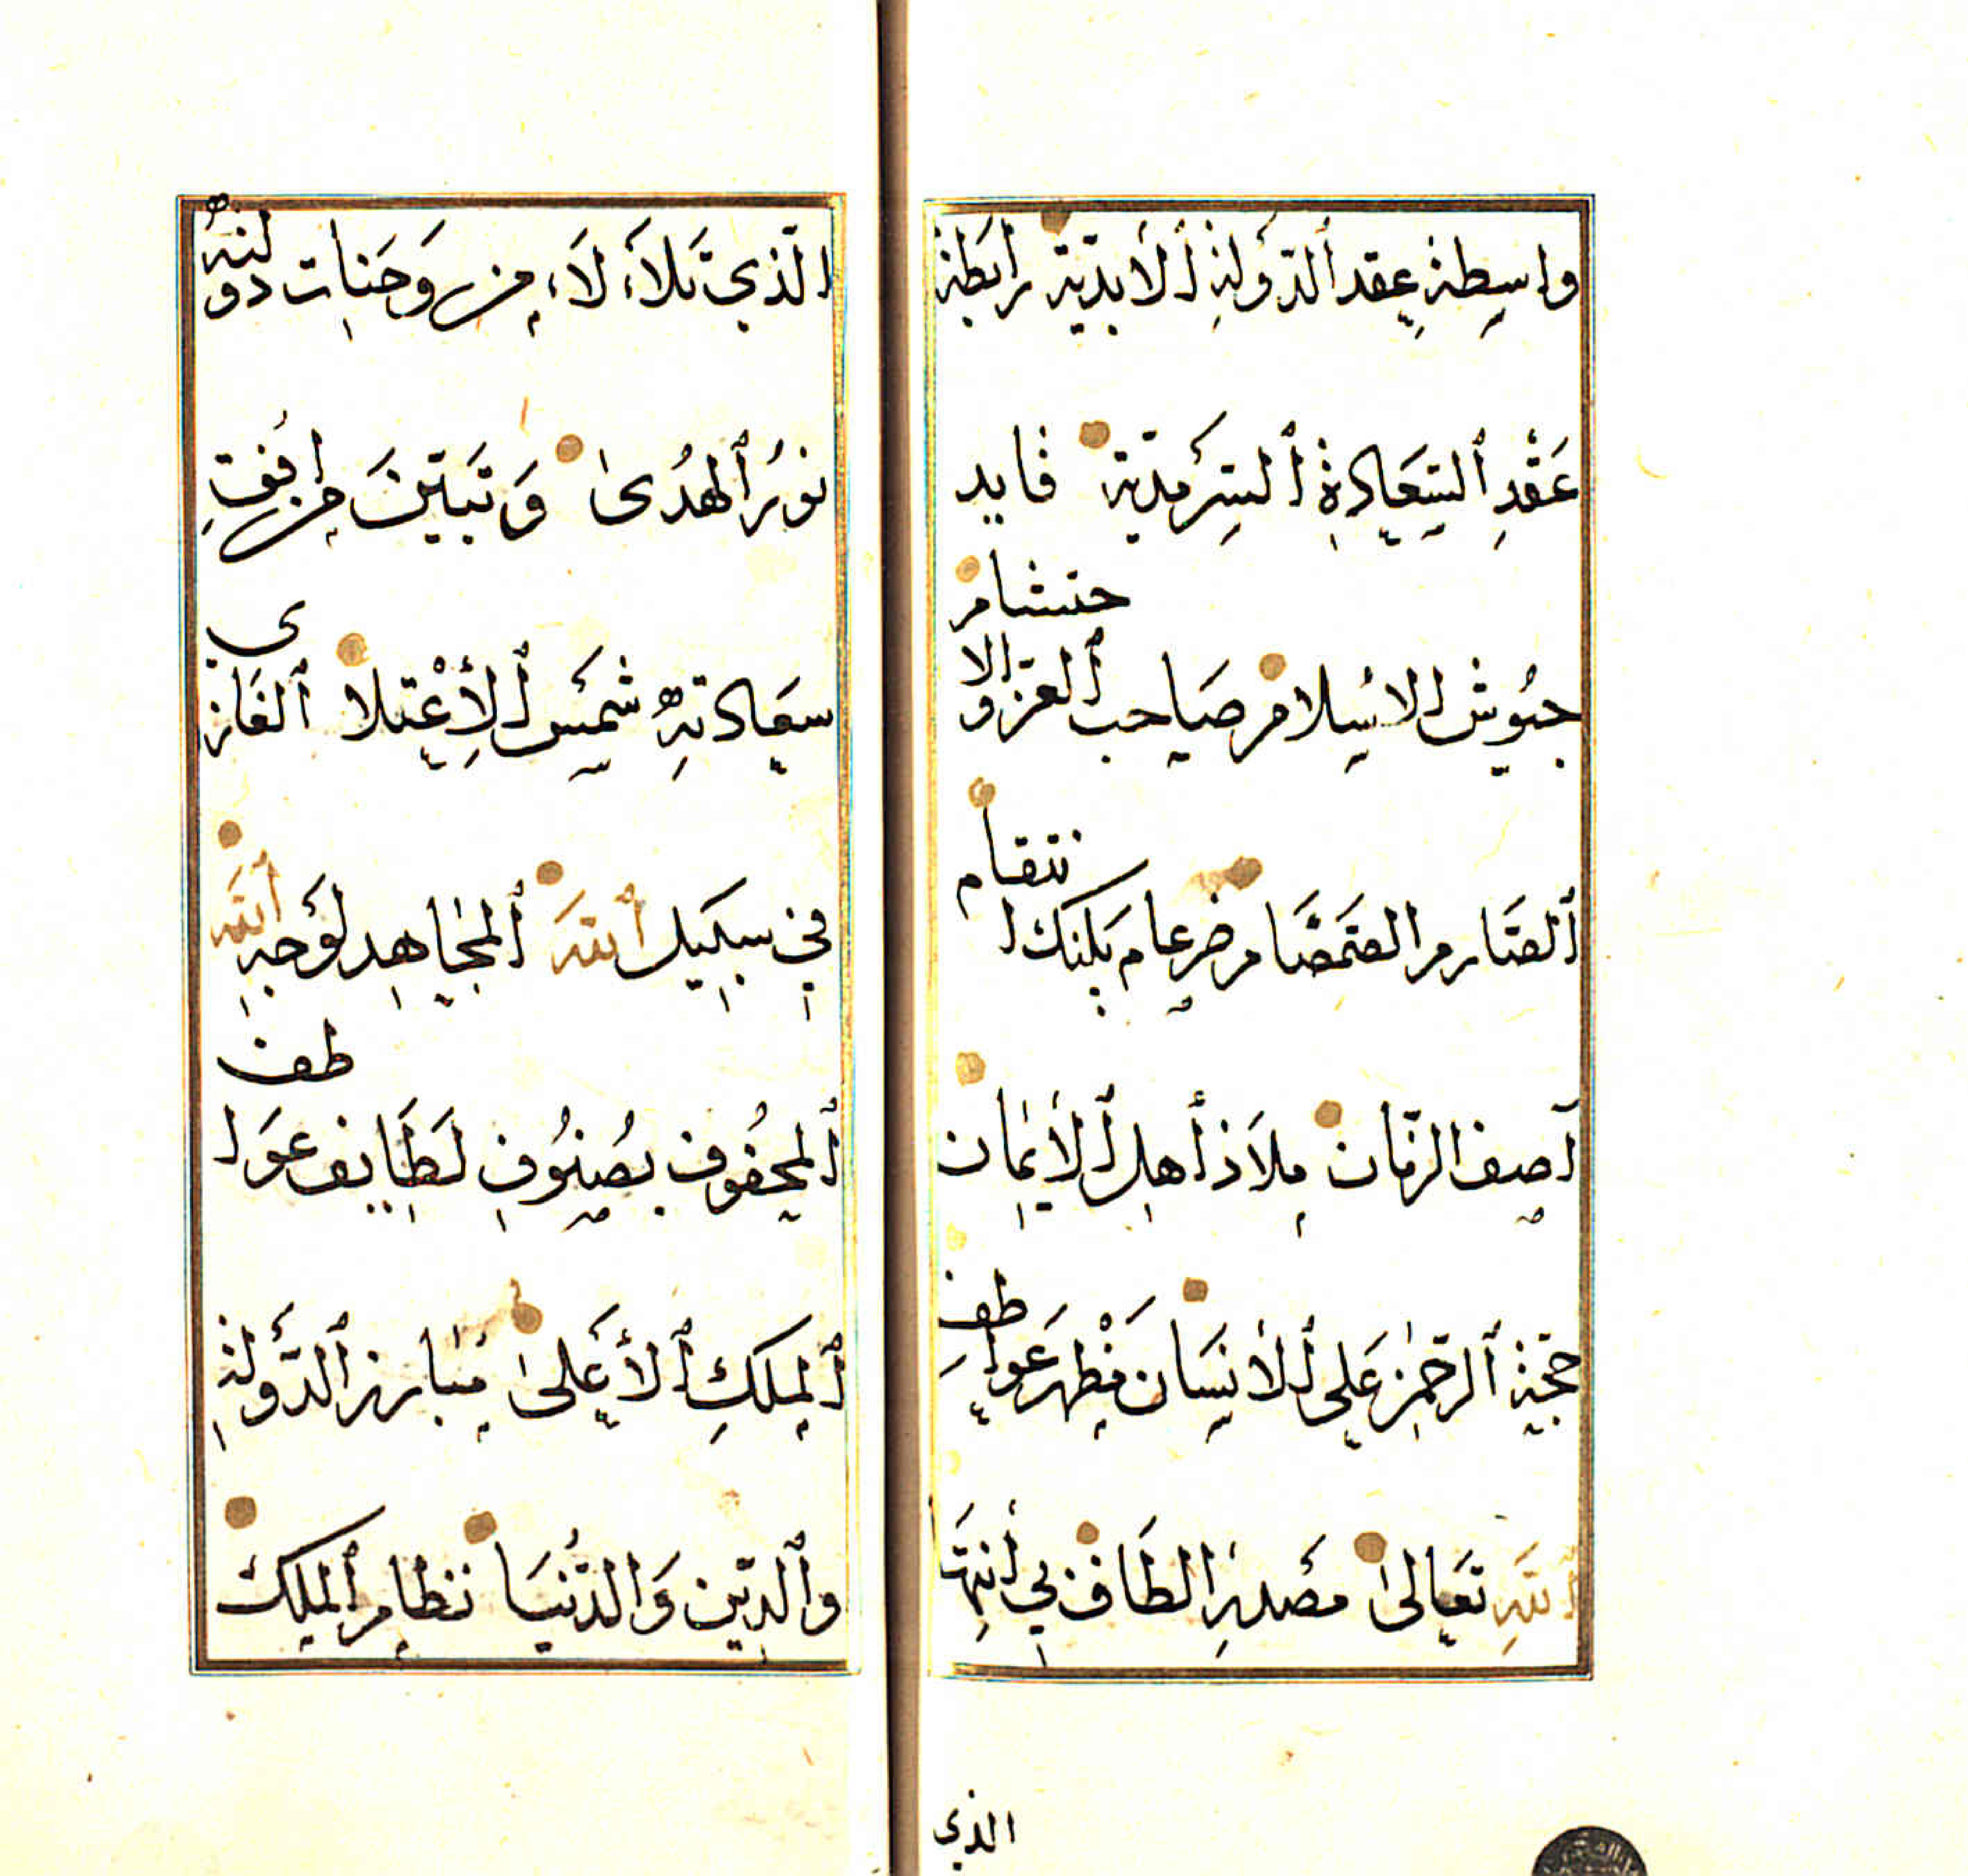 واسِطةِ عِقد ٱلدّولةِ ٱلأبديّة رابطة
عَقْدِ ٱلسَّعَادةِ ٱلسّرمديّة قايد
جيُوش الاسْلام صَاحب ٱلعزّ والاحتشام
ٱلصَّارم الصَّمصَام ضرغام پلنك انتقام
آصف الزمّان مِلاَذ أهل ٱلأيمان
حجّة ٱلرّحمن عَلى ٱلانسَان مَظْهر عَواطف
ٱللهِ تعَالى مصْدر الطَاف بي أنتها
الذي
الّذي تَلأَلاَء مِن وَجَنات دولتهُ
نورُ ٱلهدُى وَتَبَيّنَ مِن افُقِ
سعَادتِهُ شمسْ ٱلأِعْتلا ٱلغَازي
في سبيل ٱللهَ ٱلمجَاهِد لوَجهِ ٱللهَ
ٱلمحفُوف بصُنوُفِ لَطَايف عوَاطف
ٱلملكِ ٱلأعَلىٰ مبَارز ٱلدَّولةِ
وٱلدّين وَالدُّنيَا نظام ٱلملك